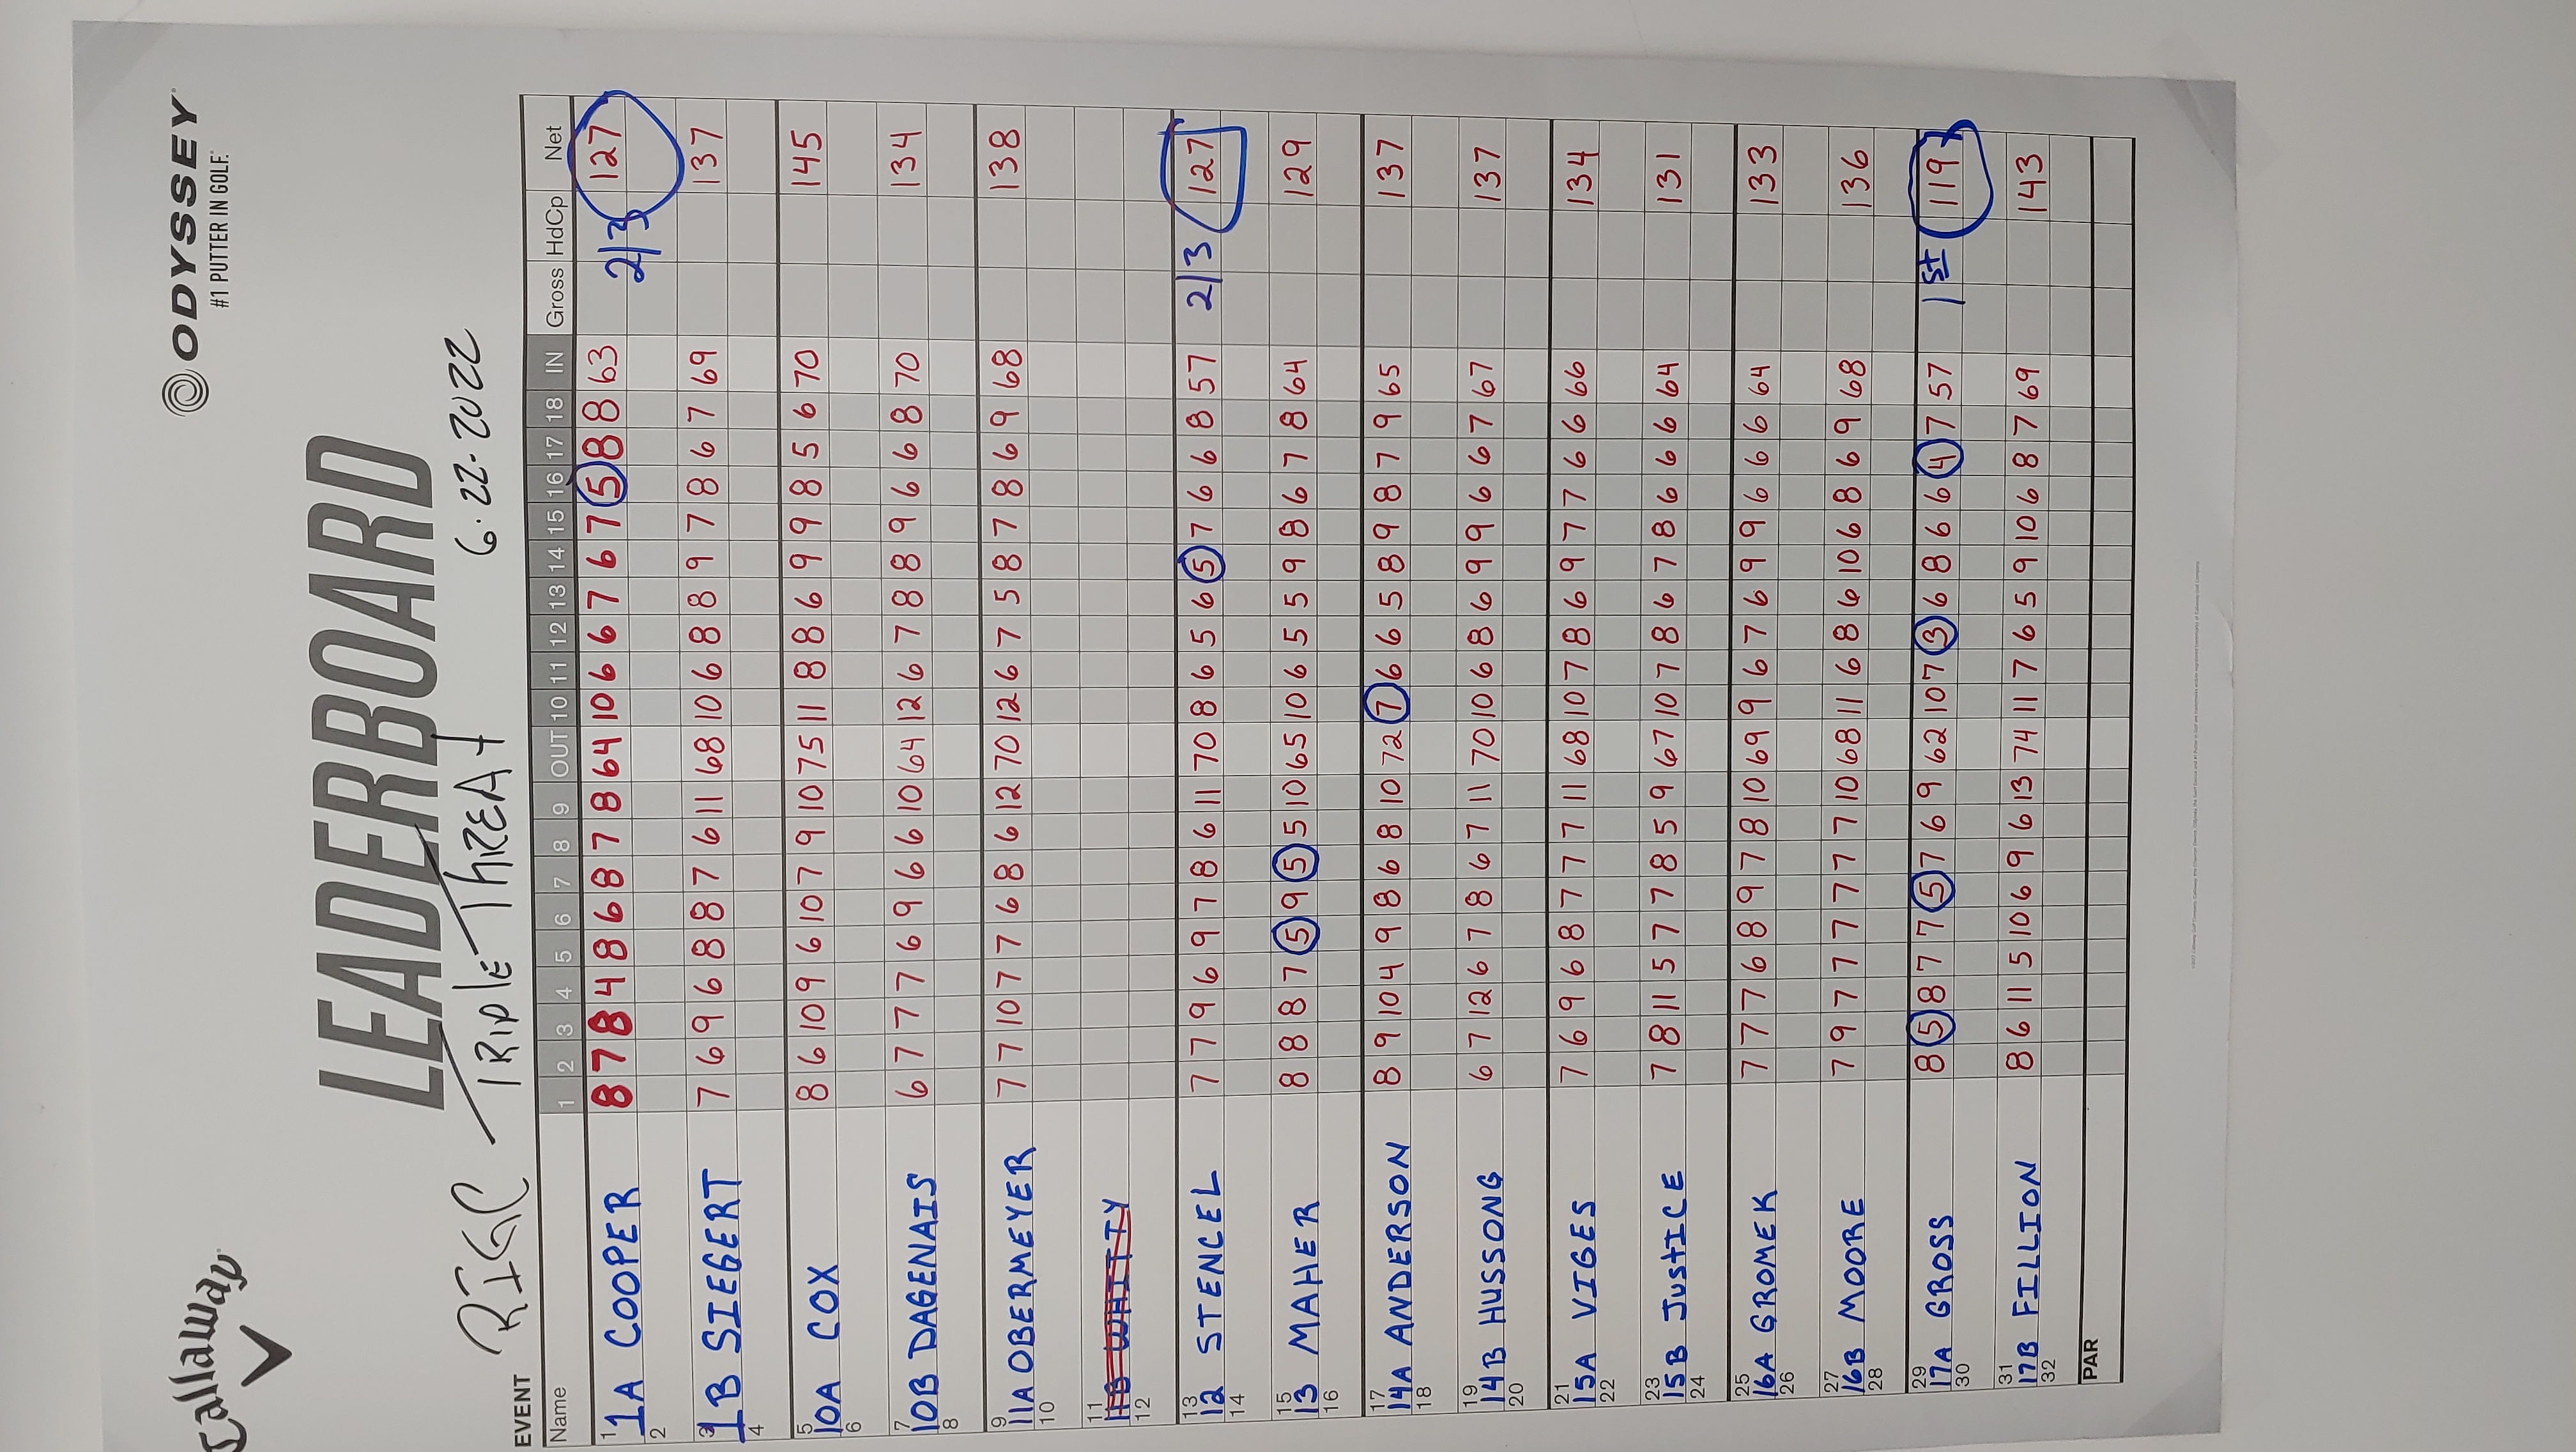 Callaway
ODYSSEY
#1 PUTTER IN GOLF.
LEADERBOARD
EVENT RIGC TRIPLE THREAT 6-22-2022
Name 1 2 3 4 5 6 7 8 9 OUT 10 11 12 13 14 15 16 17 18 IN Gross HdCp Net
1 1A COOPER 8 7 8 4 8 6 8 7 8 64 10 6 6 7 6 7 5 8 8 63 2/3 127
2
3 1B SIEGERT 7 6 9 6 8 8 7 6 11 68 10 6 8 8 9 7 8 6 7 69 137
4
5 10A COX 8 6 10 9 6 10 7 9 10 75 11 8 8 6 9 9 8 5 6 70 145
6
7 10B DAGENAIS 6 7 7 7 6 9 6 6 10 64 12 6 7 8 8 9 6 6 8 70 134
8
9 11A OBERMEYER 7 7 10 7 7 6 8 6 12 70 12 6 7 5 8 7 8 6 9 68 138
10
11 11B WHITTY
12
13 12 STENCEL 7 7 9 6 9 7 8 6 11 70 8 6 5 6 5 7 6 6 8 57 2/3 127
14
15 13 MAHER 8 8 8 7 5 9 5 5 10 65 10 6 5 5 9 8 6 7 8 64 129
16
17 14A ANDERSON 8 9 10 4 9 8 6 8 10 72 7 6 6 5 8 9 8 7 9 65 137
18
19 14B HUSSONG 6 7 12 6 7 8 6 7 11 70 10 6 8 6 9 9 6 6 7 67 137
20
21 15A VIGES 7 6 9 6 8 7 7 7 11 68 10 7 8 6 9 7 7 6 6 66 134
22
23 15B JUSTICE 7 8 11 5 7 7 8 5 9 67 10 7 8 6 7 8 6 6 6 64 131
24
25 16A GROMEK 7 7 7 6 8 9 7 8 10 69 9 6 7 6 9 9 6 6 6 64 133
26
27 16B MOORE 7 9 7 7 7 7 7 7 10 68 11 6 8 6 10 6 8 6 9 68 136
28
29 17A GROSS 8 5 8 7 7 5 7 6 9 62 10 7 3 6 8 6 6 4 7 57 1st 119
30
31 17B FILLION 8 6 11 5 10 6 9 6 13 74 11 7 6 5 9 10 6 8 7 69 143
32
PAR